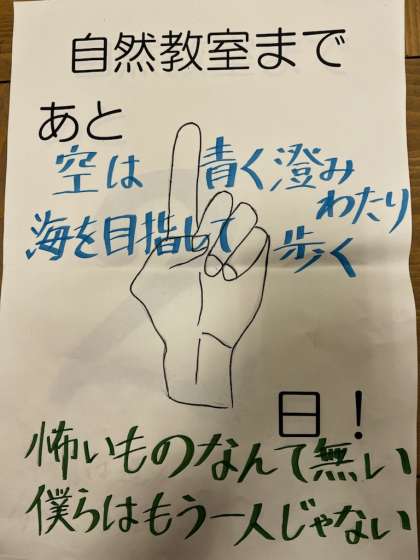 自然教室まで
あと
空は 青く澄み
わたり
海を目指して 歩く
日!
怖いものなんて無い
僕らはもう一人じゃない